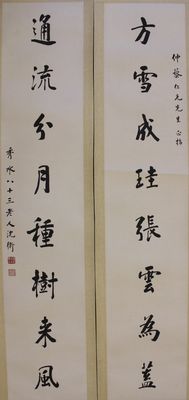 仲馨仁兄先生正指
方雪成珪張雲為蓋
通流分月種樹来風
秀水八十三老人沈衛